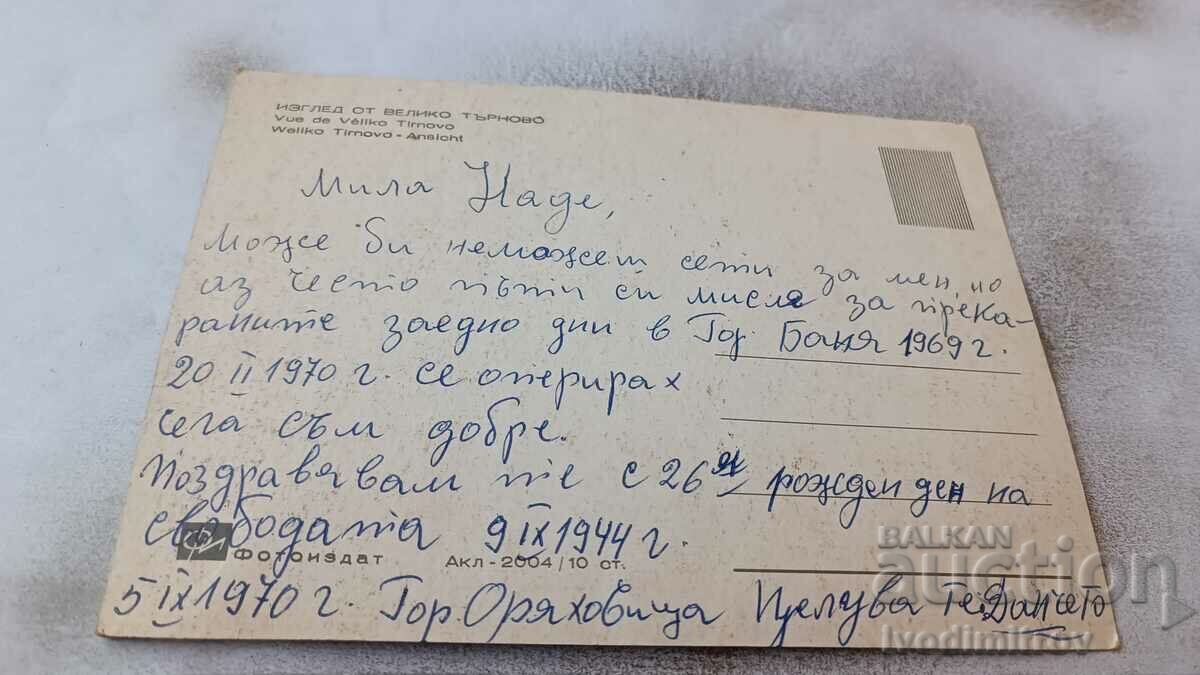 ИЗГЛЕД ОТ ВЕЛИКО ТЪРНОВО
Vue de Véliko Tirnovo
Weliko Tirnovo - Ansicht
Мила Наде,
може би неможеш сети за мен, но
аз често пъти си мисля за прека-
раните заедно дни в Гор. Баня 1969 г.
20 II 1970 г. се оперирах
сега съм добре.
Поздравявам те с 26ия рожден ден на
свободата 9 IX 1944 г.
Фотоиздат Акл-2004/10 ст.
5 IX 1970 г. Гор. Оряховица Целува Те: Данчето
BALKAN
auction
ivodimitrov